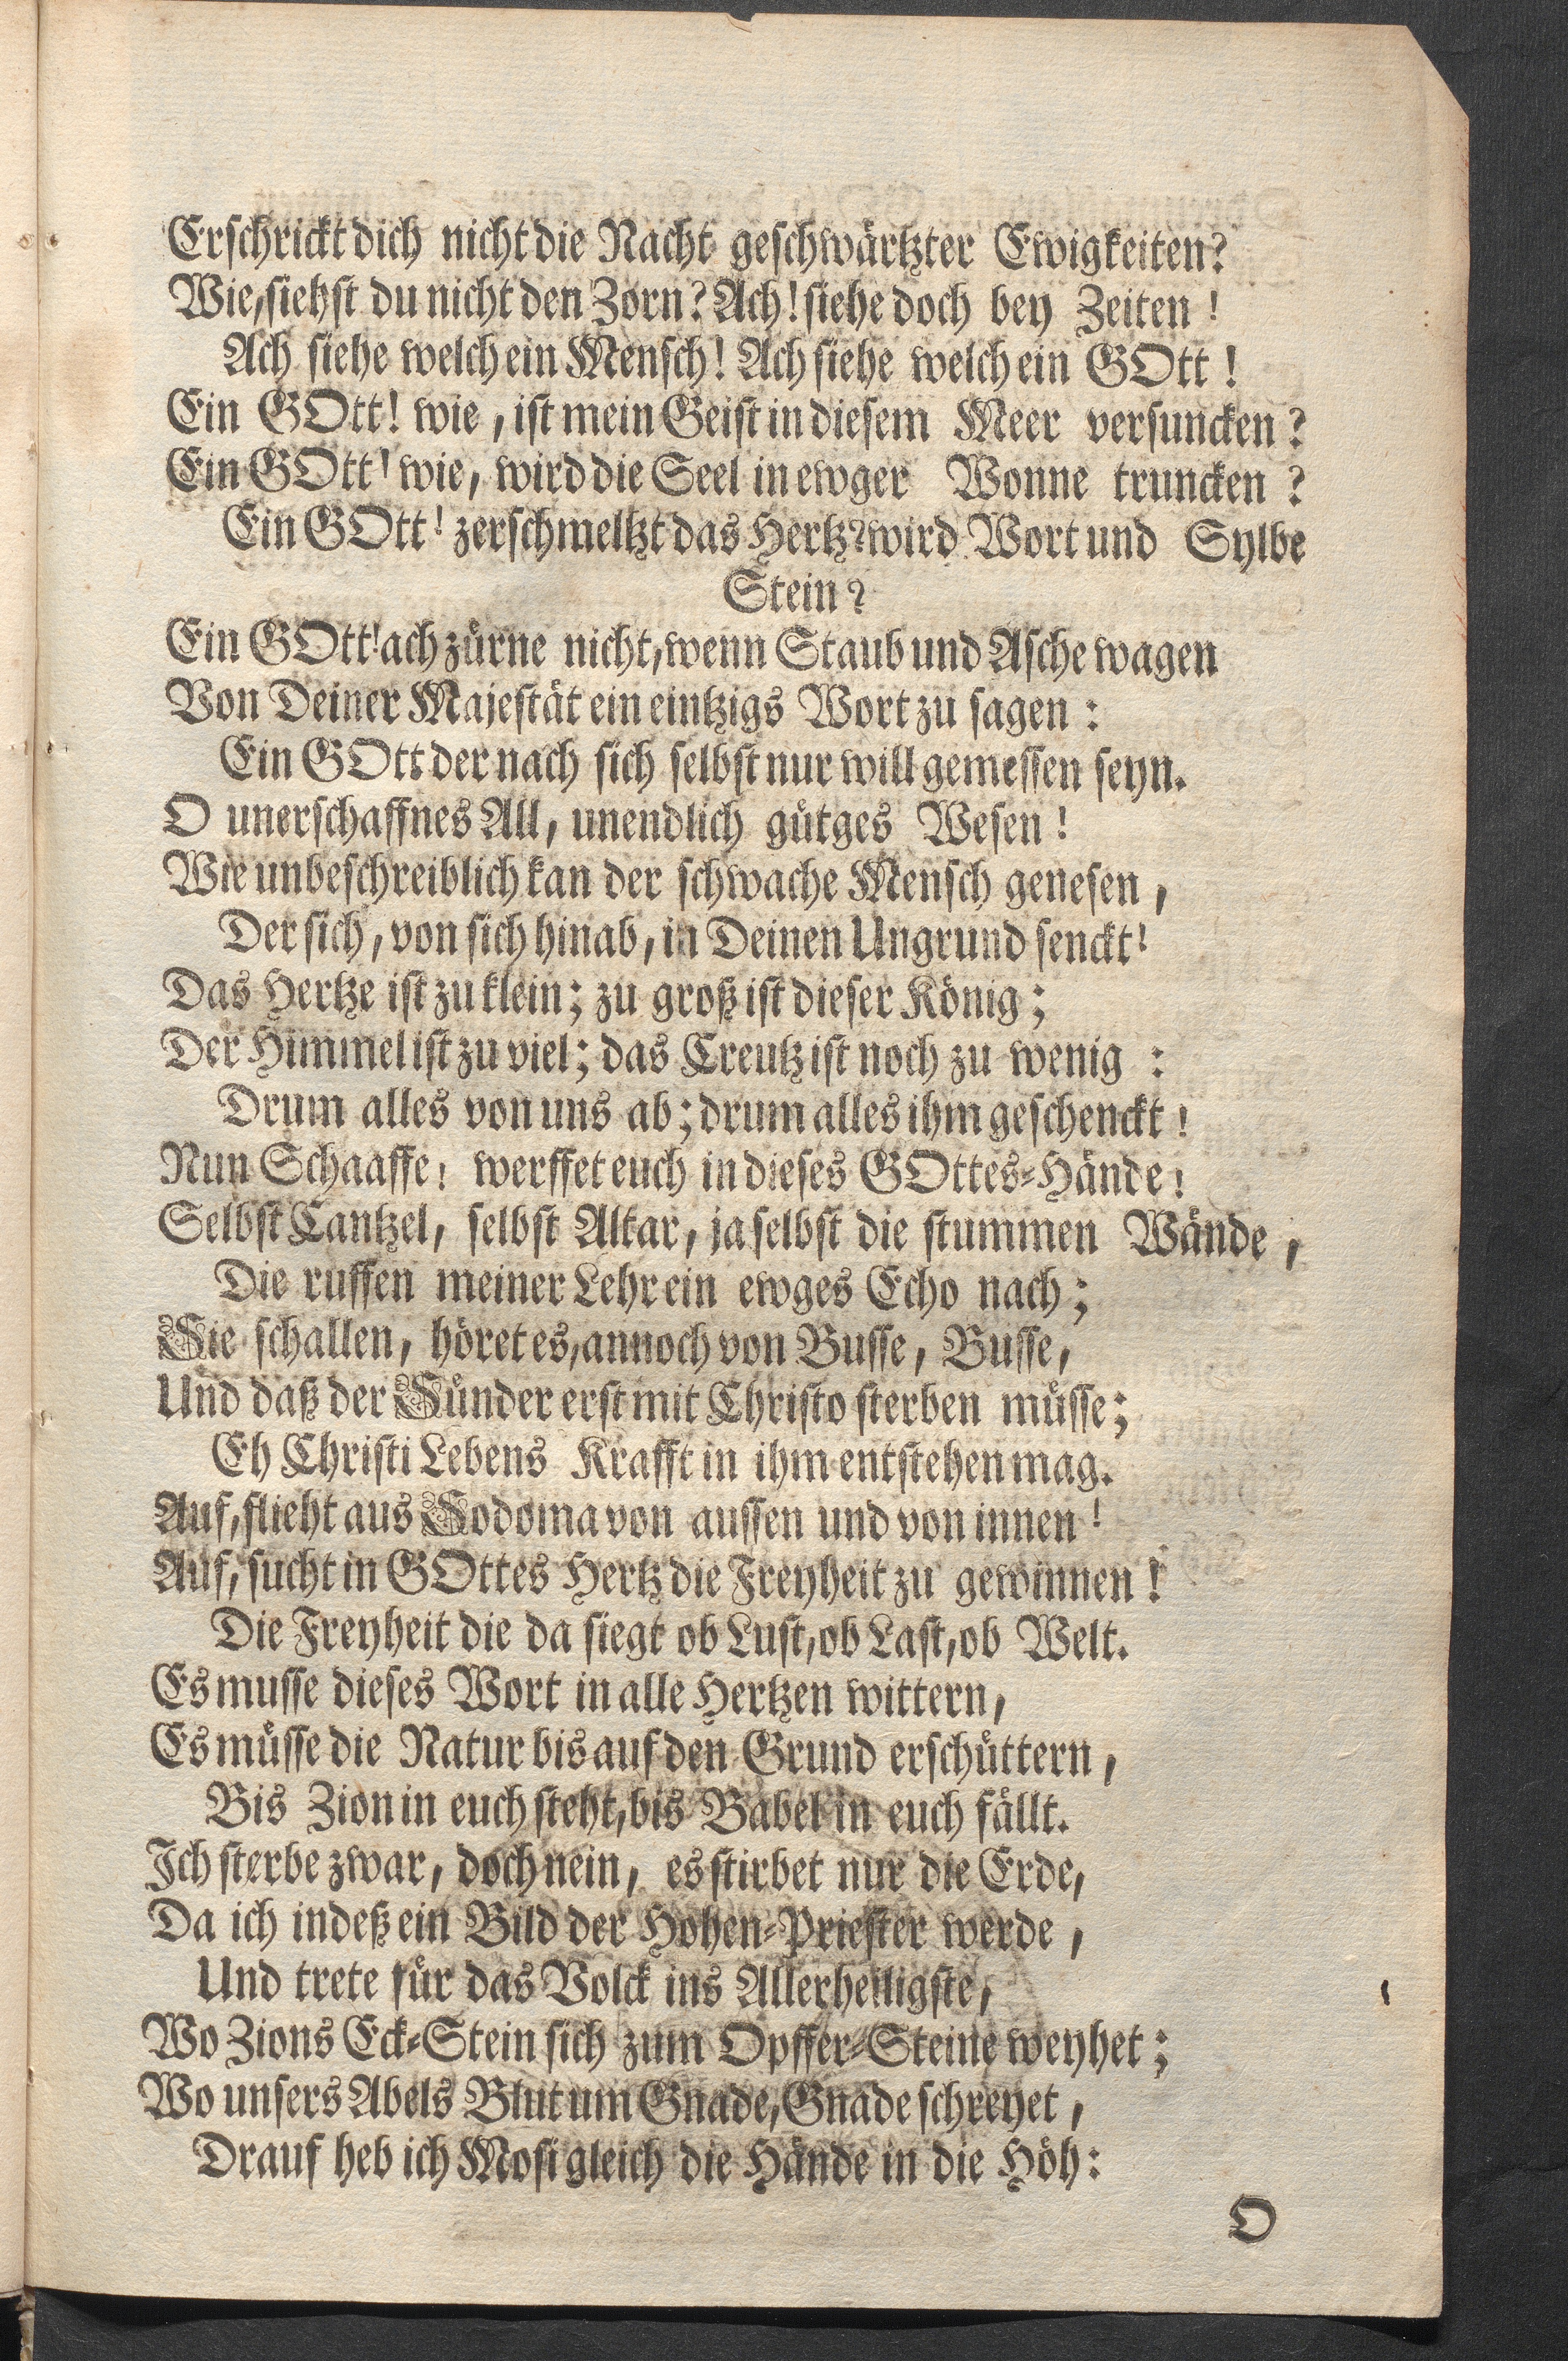 Erschrickt dich nicht die Nacht geschwärtzter Ewigkeiten?
Wie, siehst du nicht den Zorn? Ach! siehe doch bey Zeiten!
Ach siehe welch ein Mensch! Ach siehe welch ein GOtt!
Ein GOtt! wie, ist mein Geist in diesem Meer versuncken?
Ein GOtt! wie, wird die Seel in ewger Wonne truncken?
Ein GOtt! zerschmeltzt das Hertz? wird Wort und Sylbe
Stein?
Ein GOtt! ach zürne nicht, wenn Staub und Asche wagen
Von Deiner Majestät ein eintzigs Wort zu sagen:
Ein GOtt der nach sich selbst nur will gemessen seyn.
O unerschaffnes All, unendlich gütges Wesen!
Wie unbeschreiblich kan der schwache Mensch genesen,
Der sich, von sich hinab, in Deinen Ungrund senckt!
Das Hertze ist zu klein; zu groß ist dieser König;
Der Himmel ist zu viel; das Creutz ist noch zu wenig:
Drum alles von uns ab; drum alles ihm geschenckt!
Nun Schaaffe! werffet euch in dieses GOttes-Hände!
Selbst Cantzel, selbst Altar, ja selbst die stummen Wände,
Die ruffen meiner Lehr ein ewges Echo nach;
Sie schallen, höret es, annoch von Busse, Busse,
Und daß der Sünder erst mit Christo sterben müsse;
Eh Christi Lebens Krafft in ihm entstehen mag.
Auf, flieht aus Sodoma von aussen und von innen!
Auf, sucht in GOttes Hertz die Freyheit zu gewinnen!
Die Freyheit die da siegt ob Lust, ob Last, ob Welt.
Es musse dieses Wort in alle Hertzen wittern,
Es müsse die Natur bis auf den Grund erschüttern,
Bis Zion in euch steht, bis Babel in euch fällt.
Ich sterbe zwar, doch nein, es stirbet nur die Erde,
Da ich indeß ein Bild der Hohen-Priester werde,
Und trete für das Volck ins Allerheiligste,
Wo Zions Eck-Stein sich zum Opffer-Steine weyhet;
Wo unsers Abels Blut um Gnade, Gnade schreyet,
Drauf heb ich Mosi gleich die Hände in die Höh:
O